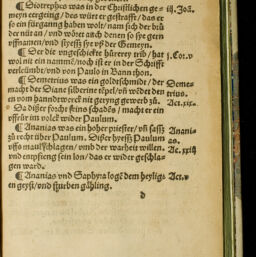 ¶ Diotrephes was in der Christlichen ge- iij. Joā.
meyn eergeitig / des würt er gestrafft / das er
so ein fürgang haben wolt / nam sich der brü
der nüt an / vnd wöret auch denen so sye gern
vffnamen / vnd sye vß der Gemeyn.
¶ Der die vngeschickte hürerey treib / hat j. Cor. v
wol nit ein namme / noch ist er in der Schrifft
verleümbt / vnd von Paulo in Bann thon.
¶ Demetrius was ein goldschmid / der Deme-
macht der Diane silberine tēpel / vñ wolt den trius.
vom handwerck nit geryng gewerb zů. Act. xix.
Da diser forcht seins schadēs / macht er ein
vffrůr im volck wider Paulum.
¶ Ananias was ein hoher priester / vñ saß Anani-
zů recht über Paulum. Diser hyeß Paulum as.
vffs maul schlagen / vmb der warheit willen. Ac. xxiij
vnd empfieng sein lon / das er wider geschla-
gen ward.
¶ Ananias vnd Saphyra logē dem heylig- Act. v
en geyst / vnd sturben gähling.
d